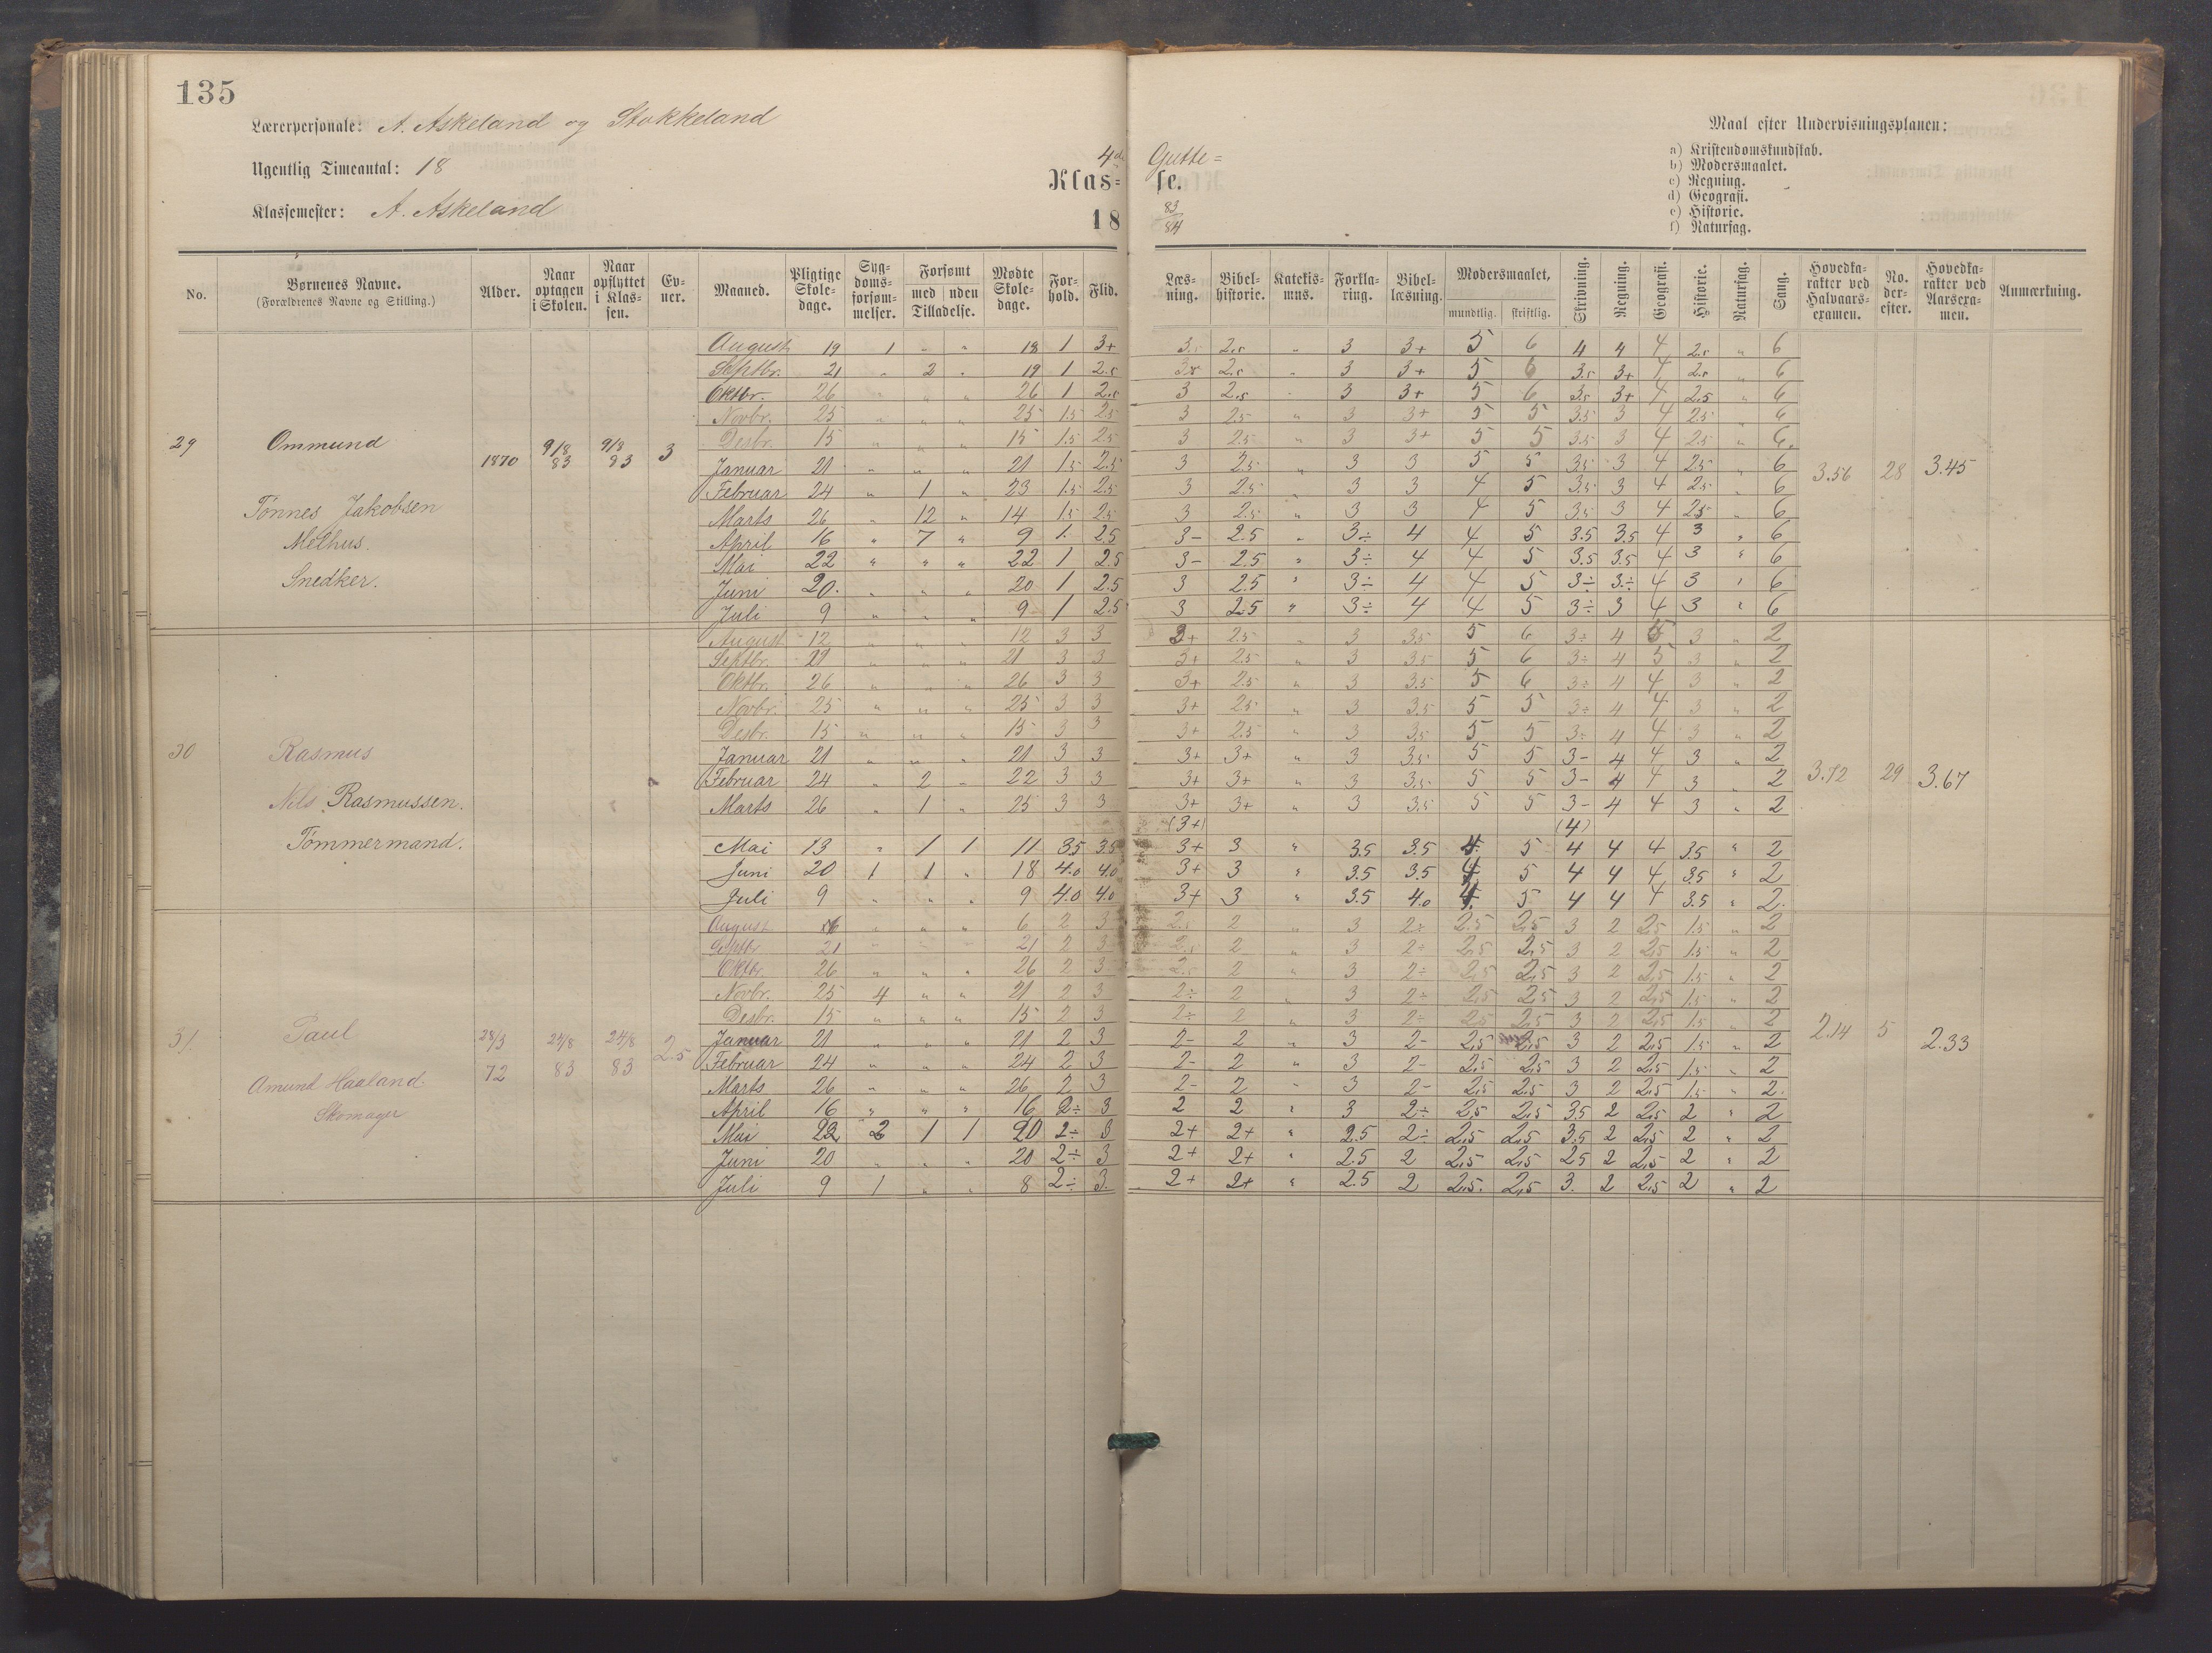 135
Lærerpersonale: A. Askeland og Stokkeland
Ugentlig Timeantal: 18
Klassemester: A. Askeland
4de Gutte=
Klas= se.
18 83/84
Maal efter Undervisningsplanen:
a) Kristendomskundskab.
b) Modersmaalet.
c) Regning.
d) Geografi.
e) Historie.
f) Naturfag.
No. | Børnenes Navne. (Forældrenes Navne og Stilling.) | Alder. | Naar optagen i Skolen. | Naar opflyttet i Klas-sen. | Ev-ner. | Maaned. | Pligtige Skole-dage. | Syg-doms-forsøm-melser. | Forsømt med Tilladelse. | uden Tilladelse. | Mødte Skole-dage. | For-hold. | Flid. | Læs-ning. | Bibel-historie. | Katekis-mus. | Forkla-ring. | Bibel-læsning. | Modersmaalet, mundtlig. | skriftlig. | Skrivning. | Regning. | Geografi. | Historie. | Naturfag. | Sang. | Hovedka-rakter ved Halvaars-examen. | No. der-efter. | Hovedka-rakter ved Aarsexa-men. | Anmærkning.
29 Ommund
Tönnes Jakobsen
Melhus.
Snedker.
1870 | 9/8 83 | 9/8 83 | 3
August 19 1 " " 18 1 3+ | 3.5 2.5 " 3 3+ 5 6 4 4 4 2.5 " 6
Septbr. 21 " 2 " 19 1 2.5 | 2.5 " 3 3+ 5 6 3.5 3+ 4 2.5 " 6
Oktbr. 26 " " " 26 1 2.5 | 3 2.5 " 3 3+ 5 6 3.5 3+ 4 2.5 " 6
Novbr. 25 " " " 25 1.5 2.5 | 3 2.5 " 3 3+ 5 5 3.5 3 4 2.5 " 6
Desbr. 15 " " " 15 1.5 2.5 | 3 2.5 " 3 3+ 5 5 3.5 3 4 2.5 " 6.
Januar 21 " " " 21 1.5 2.5 | 3 2.5 " 3 3 5 5 3.5 3 4 2.5 " 6
Februar 24 " 1 " 23 1.5 2.5 | 3 2.5 " 3 3 4 5 3.5 3 4 2.5 " 6
Marts 26 " 12 " 14 1.5 2.5 | 3 2.5 " 3 3 4 5 3.5 3 4 2.5 " 6
April 16 " 7 " 9 1. 2.5 | 3- 2.5 " 3÷ 4 4 5 3.5 3.5 4 3 " 6
Mai 22 " " " 22 1 2.5 | 3- 2.5 " 3÷ 4 4 5 3.5 3.5 4 3 " 6
Juni 20. " " " 20 1 2.5 | 3 2.5 " 3÷ 4 4 5 3÷ 3÷ 4 3 " 6
Juli 9 " " " 9 1 2.5 | 3 2.5 " 3÷ 4 4 5 3÷ 3 4 3 " 6
3.56 28 3.45
30 Rasmus
Nils Rasmussen.
Tömmermand.
August 12 " " " 12 3 3 | 3+ 2.5 " 3 3.5 5 6 3÷ 4 5 3 " 2
Septbr. 21 " " " 21 3 3 | 3+ 2.5 " 3 3.5 5 6 3÷ 4 5 3 " 2
Oktbr. 26 " " " 26 3 3 | 3+ 2.5 " 3 3.5 5 6 3÷ 4 4 3 " 2
Novbr. 25 " " " 25 3 3 | 3+ 2.5 " 3 3.5 5 5 3÷ 4 4 3 " 2
Desbr. 15 " " " 15 3 3 | 3+ 2.5 " 3 3.5 5 5 3÷ 4 4 3 " 2
Januar 21 " " " 21 3 3 | 3+ 3+ " 3 3.5 5 5 3- 4 4 3 " 2
Februar 24 " 2 " 22 3 3 | 3+ 3+ " 3 3.5 5 5 3- 4 4 3 " 2
Marts 26 " 1 " 25 3 3 | 3+ 3+ " 3 3.5 5 5 3- 4 4 3 " 2
(3+) (4)
Mai 13 " 1 1 11 3.5 3.5 | 3+ 3 " 3.5 3.5 4. 5 4 4 4 3.5 " 2
Juni 20 1 1 " 18 4.0 4.0 | 3+ 3 " 3.5 3.5 4 5 4 4 4 3.5 " 2
Juli 9 " " " 9 4.0 4.0 | 3+ 3 " 3.5 4.0 4. 5 4 4 4 3.5 " 2.
3.72 29 3.67
31. Paul
Amund Haaland.
Skomager
28/3 72 | 24/8 83 | 24/8 83 | 2.5
August 6 " " " 6 2 3 | 2.5 2 " 3 2÷ 2.5 2.5 3 2 2.5 1.5 " 2
Septbr 21 " " " 21 2 3 | 2.5 2 " 3 2÷ 2.5 2.5 3 2 2.5 1.5 " 2
Oktbr. 26 " " " 26 2 3 | 2.5 2 " 3 2÷ 2.5 2.5 3 2 2.5 1.5 " 2
Novbr. 25 4 " " 21 2 3 | 2÷ 2 " 3 2÷ 2.5 2.5 3 2 2.5 1.5 " 2
Desbr. 15 " " " 15 2 3 | 2÷ 2 " 3 2÷ 2.5 2.5 3 2 2.5 1.5 " 2
Januar 21 " " " 21 2 3 | 2- 2 " 3 2- 2.5 2.5 3 2 2.5 1.5 " 2
Februar 24 " " " 24 2 3 | 2- 2 " 3 2- 2.5 2.5 3 2 2.5 1.5 " 2
Marts 26 " " " 26 2 3 | 2- 2 " 3 2- 2.5 2.5 3 2 2.5 1.5 " 2.
April 16 " " " 16 2÷ 3 | 2 2 " 3 2÷ 2.5 2.5 3.5 2 2.5 2 " 2
Mai 22 2 1 1 20 2÷ 3 | 2+ 2+ " 2.5 2÷ 2.5 2.5 3.5 2 2.5 2 " 2
Juni 20 " " " 20 2÷ 3 | 2+ 2+ " 2.5 2 2.5 2.5 2.5 2 2.5 2 " 2
Juli 9 1 " " 8 2÷ 3. | 2+ 2+ " 2.5 2 2.5. 2.5 3. 2 2.5 2 " 2
2.14 5 2.33